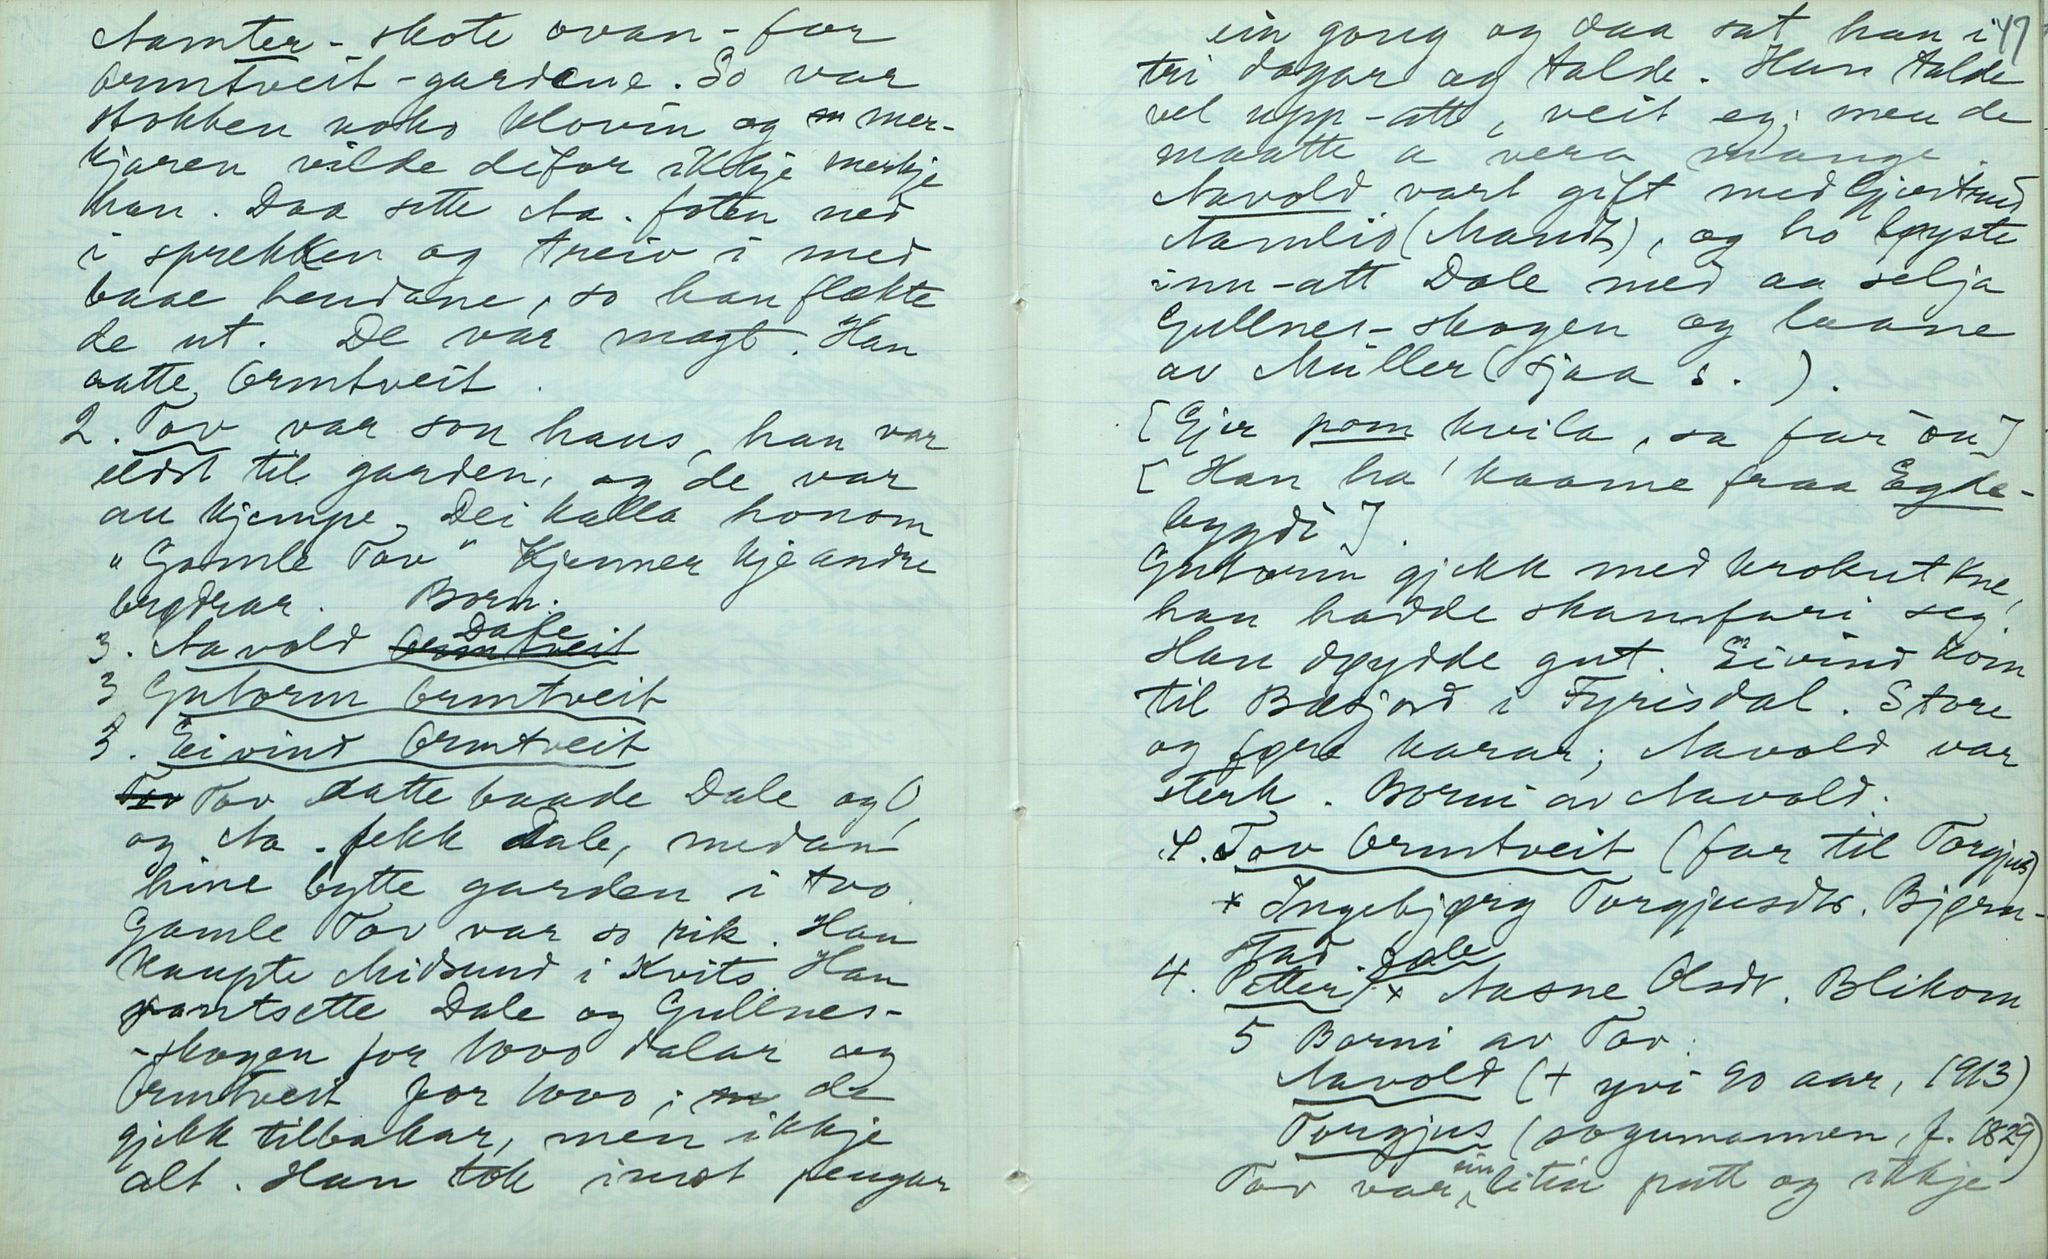 Aamter-skote ovan-for
Ormtveit-gardene. So var
stokken noko klovin og mer-
kjaren vilde difor ikkje merkje
han. Daa sette Aa. foten ned
i sprekken og treiv i med
baae hendane, so han flækte
de ut. De var magt. Han
aatte Ormtveit.
2. Tov var son hans, han var
eldst til garden, og de var
au kjempe. Dei kalla honom
"Gamle Tov" Kjenner kje andre
brødrar. Born:
3. Aavold Ormtveit Dale
3 Gutorm Ormtveit
3. Eivind Ormtveit
Tov Tov aatte baade Dale og O,
og Aa. fekk Dale, medan
hine bytte garden i tvo.
Gamle Tov var so rik. Han
kaupte Midsund i Kvits. Han
pantsette Dale og Gullnes-
-skogen for 1000 dalar og
Ormtveit for 1000; de
gjekk tilbakar, men ikkje
alt. Han tok imot pengar
47
ein gong og daa sat han i
tri dagar og talde. Han talde
vel upp-att, veit eg; men de
maatte a vera mange.
Aavold vart gift med Gjertrud
Aamlid (Mandt), og ho løyste
inn-att Dale med aa selja
Gullnes-skogen og laane
av Müller (sjaa s. ).
[Gjer pom kvila, sa far ou]
[Han ha' kaame fraa Egde-
bygdi].
Gutorm gjekk med krokut kne,
han hadde skamfari seg.
Han døydde gut. Eivind kom
til Bæsjord i Fyrisdal. Store
og føre karar; Aavold var
sterk. Borni av Aavold:
4. Tov Ormtveit (far til Torgjus)
x Ingebjørg Torgjusdtr. Bjørn-
stad
4. Petter Dale x Aasne Olsdtr. Blikom
5 Borni av Tov:
Aavold (+ yvi 90 aar, 1913)
Torgjus (sogumannen, f. 1829)
Tov var ein liten putt og ikkje